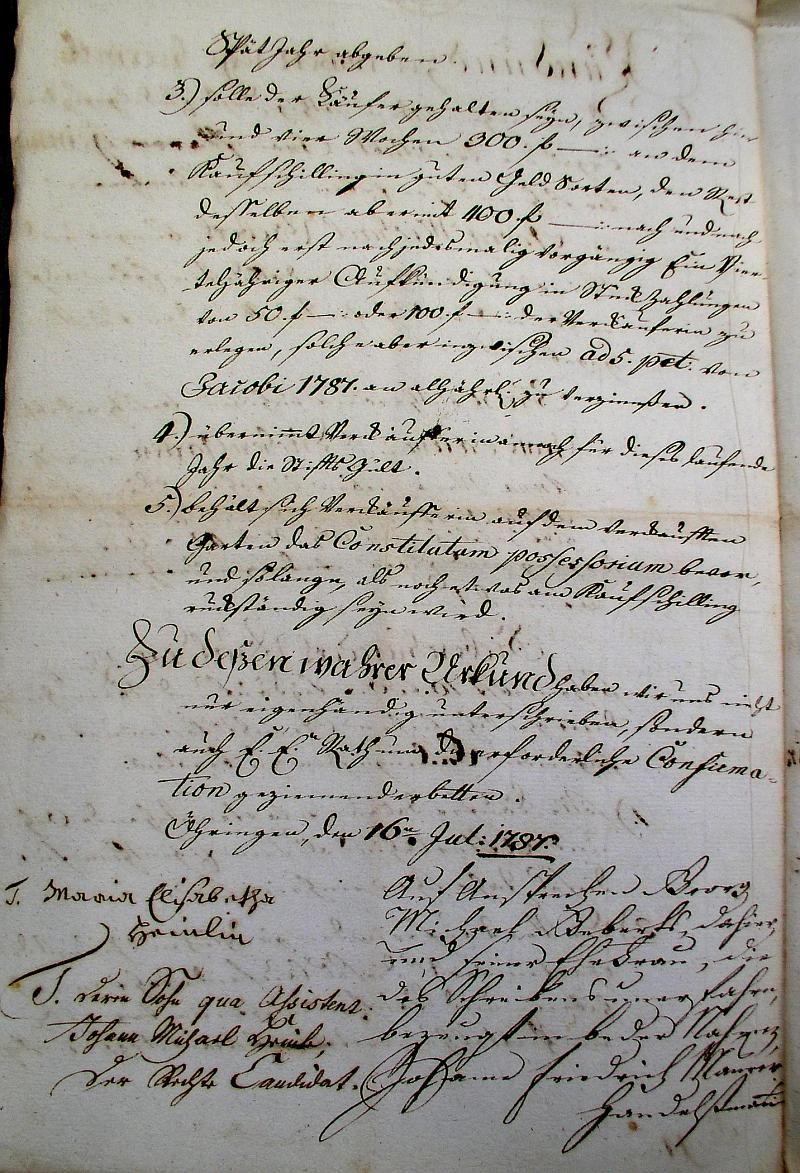 Spät Jahr abgeben.
3.) solle der Käufer gehalten seyn, zwischen hier
und vier Wochen 300. f. —:: an dem
Kaufschilling in guten Geld Sorten, den Rest
desselben aber mit 400. f. —:: nach und nach
jedoch erst nach jedesmalig vorgängig Ein Vier-
teljähriger Aufkündigung in Stuck Zahlungen
von 50. f. —:: oder 100. f. —:: der Verkäuferin zu
erlegen, solche aber inzwischen ad 5. pct. von
Jacobi 1787. an alljährl. zu verzinnßen.
4.) übernimmt Verkäufferin annoch für dieses laufende
Jahr die Stiffts Gült.
5.) behält sich Verkäufferin auf dem verkaufften
Garten das Constitutum possessorium bevor,
und solange, als noch etwas am Kaufschilling
rückständig seyn wird.
Zu deßen wahrer Urkund haben wir uns nicht
nur eigenhändig unterschrieben, sondern
auch E. E. Rath um die erforderliche Confirma-
tion geziemend erbetten.
Öhringen, den 16ten Jul: 1787.
T. Maria Elisabetha
Heinlin
T. deren Sohn qua Assistent.
Johann Michael Heinle,
der Rechte Candidat.
Auf Ansprechen Georg
Michael Weberts, dahier,
und seiner Ehefrau, die
des Schreibens unerfahren,
bezeugt in beder Nahmen,
Johann Friedrich Maurer,
Handelsmann